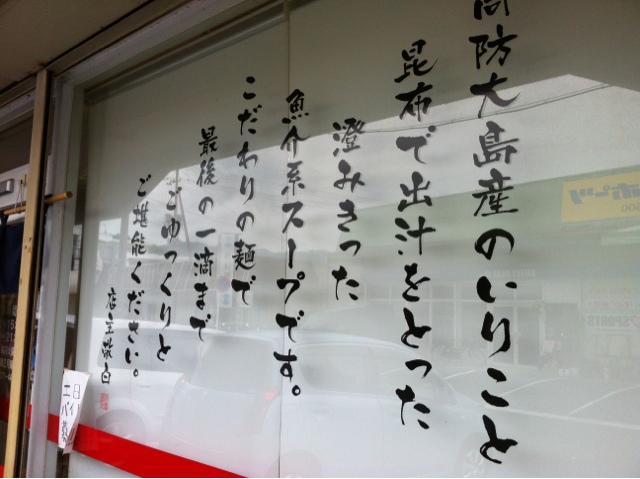 周防大島産のいりこと
昆布で出汁をとった
澄みきった
魚介系スープです。
こだわりの麺で
最後の一滴まで
ごゆっくりと
ご堪能ください。
店主敬白